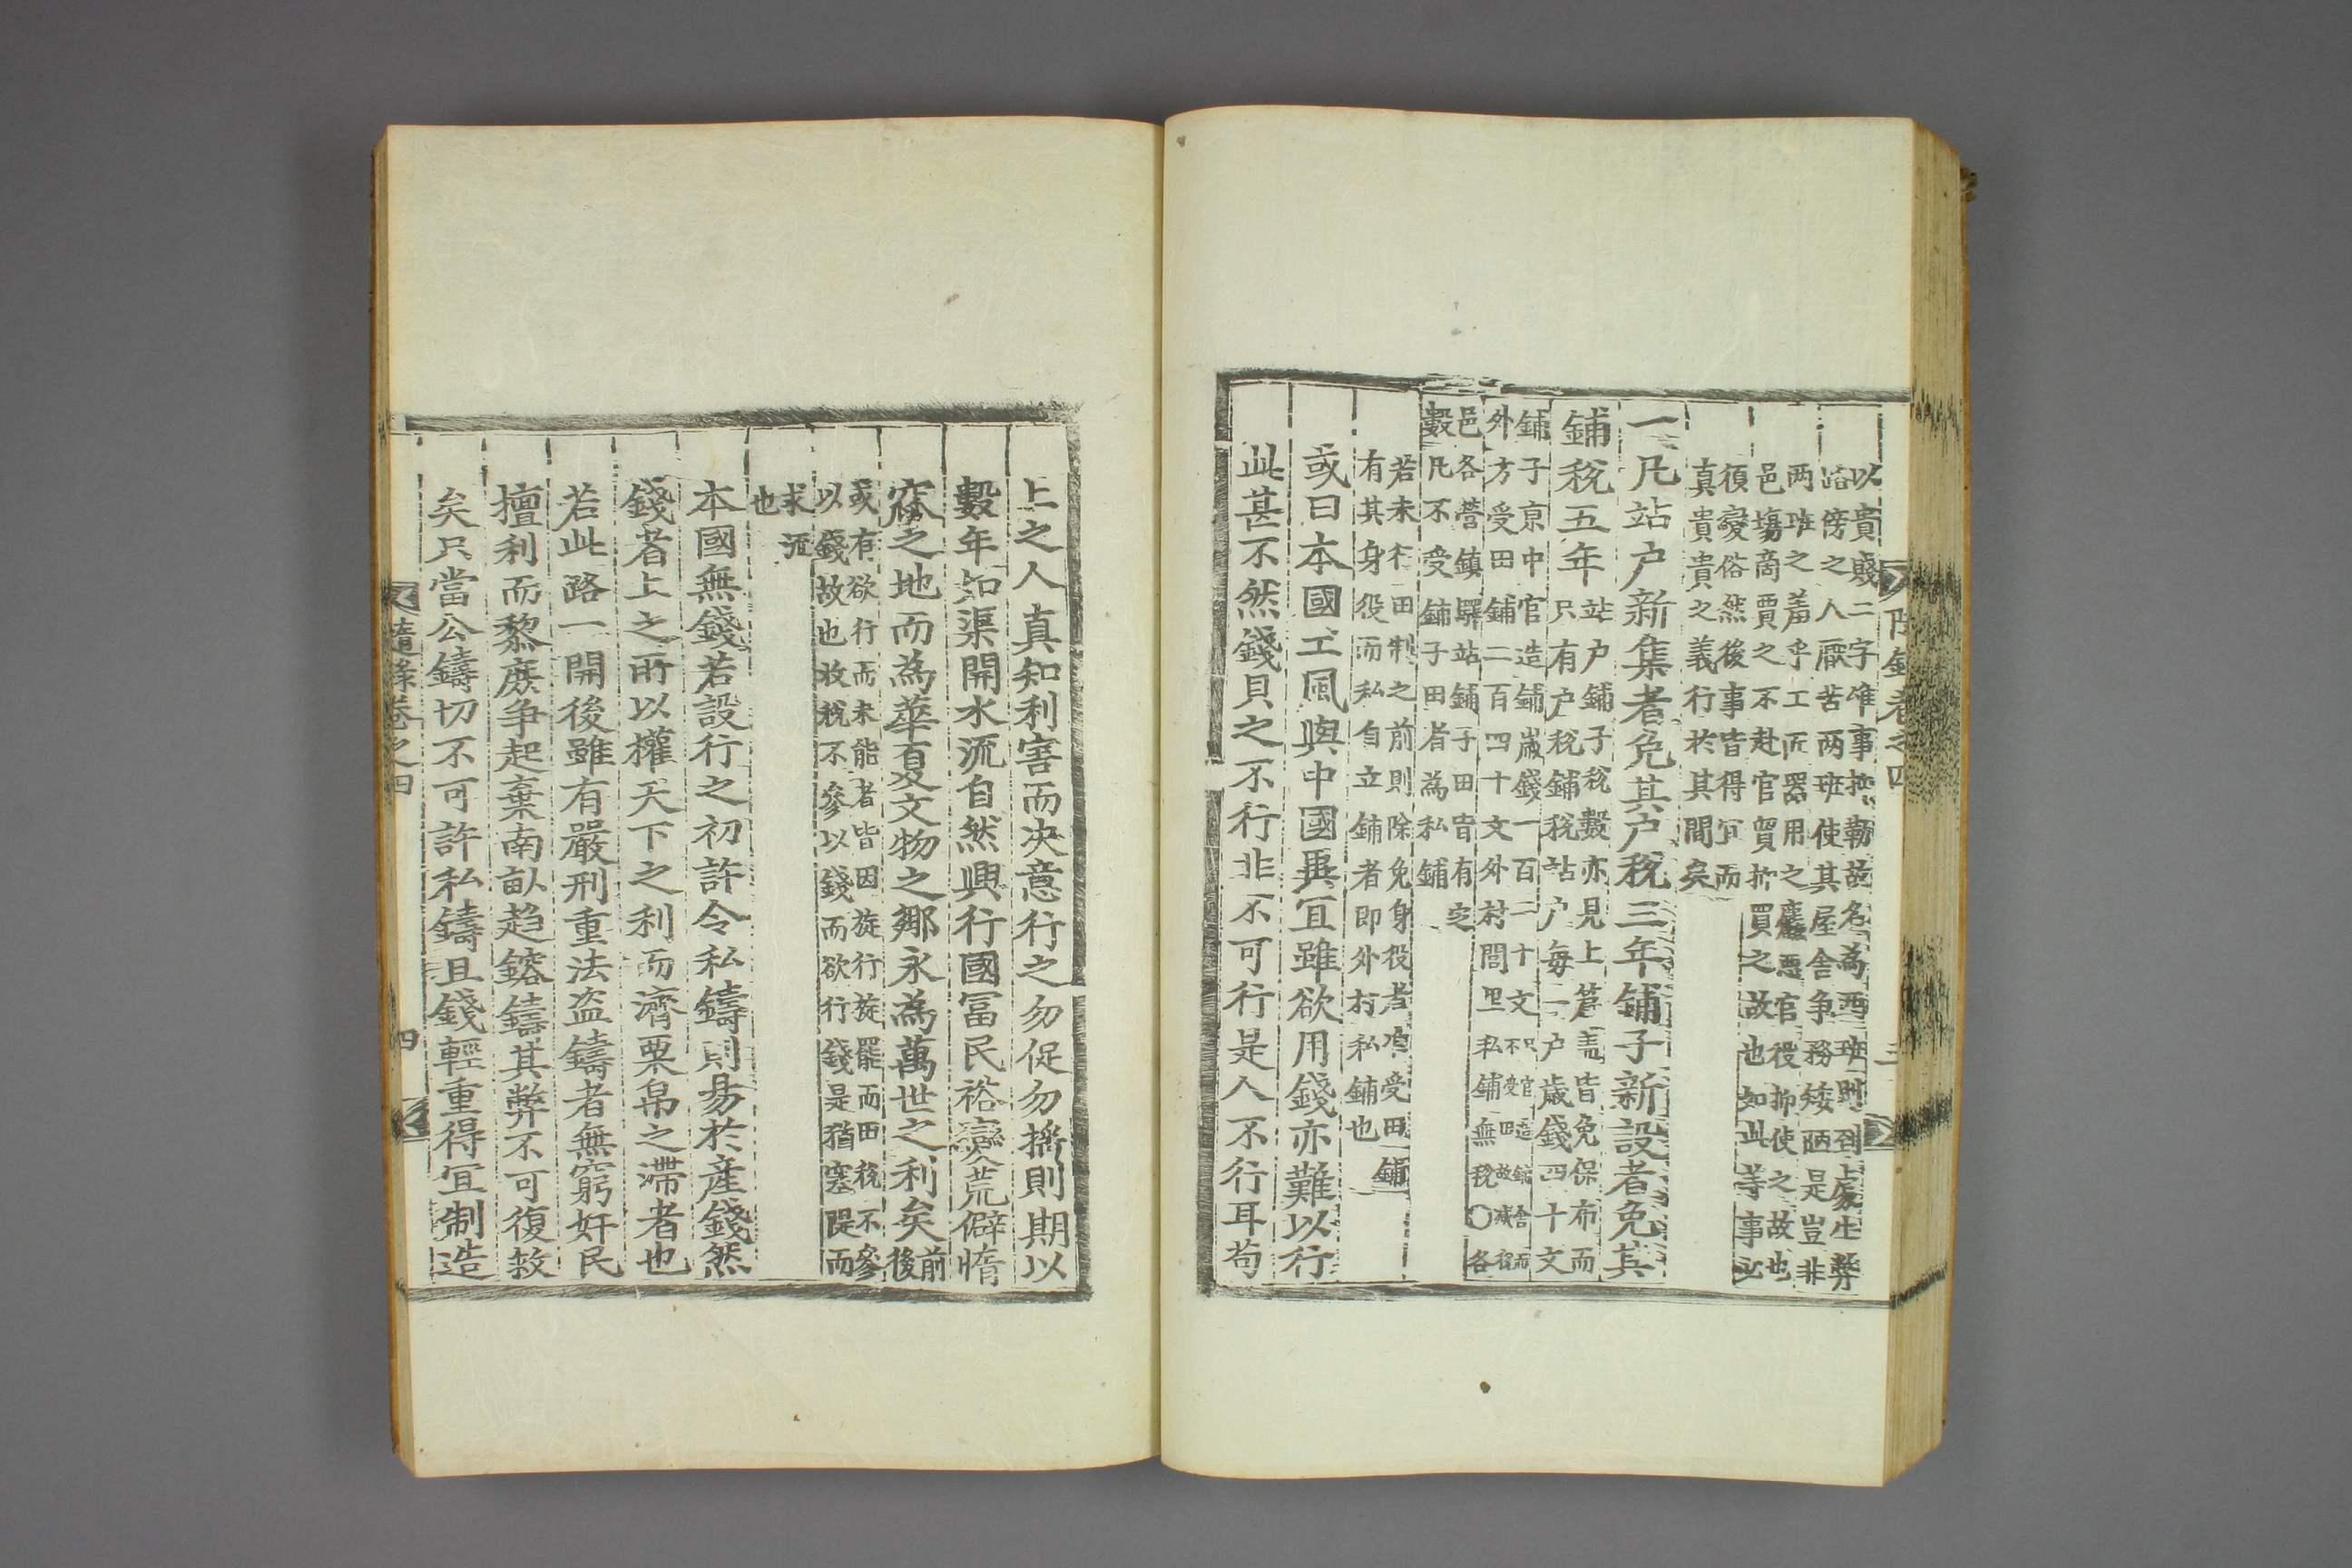 隨錄卷之四
三
以貴賤二字唯事抑勒故名為兩班則到處生弊
路傍之人厭苦兩班使其屋舍爭務矮陋是豈非
兩班之羞乎工匠器用之麤惡官役抑使之故也
邑塲商賈之不赴官貿抑買之故也如此等事必
須變俗然後事皆得宜而
真貴貴之義行於其間矣
一凡站户新集者免其户稅三年鋪子新設者免其
鋪稅五年
站户鋪子稅數亦見上篇盖皆免保布而
只有户稅鋪稅站户每一户歲錢四十文
鋪子京中官造鋪歲錢一百二十文
只官造鋪舍而
不受田故減稅
外方受田鋪二百四十文外村閭里私鋪無稅○各
邑各營鎮驛站鋪子田皆有定
數凡不受鋪子田者為私鋪
若未行田制之前則除免身役者為受田鋪
有其身役而私自立鋪者即外村私鋪也
或曰本國土風與中國異宜雖欲用錢亦難以行
此甚不然錢貝之不行非不可行是人不行耳苟
上之人真知利害而决意行之勿促勿撓則期以
數年如渠開水流自然興行國冨民裕變荒僻惰
窳之地而為華夏文物之鄉永為萬世之利矣
前
後
或有欲行而未能者皆因旋行旋罷而田稅不參
以錢故也收稅不參以錢而欲行錢是猶塞隄而
求流
也
本國無錢若設行之初許令私鑄則易於產錢然
錢者上之所以權天下之利而濟粟帛之滯者也
若此路一開後雖有嚴刑重法盗鑄者無窮奸民
擅利而黎庶爭起棄南畝趋鎔鑄其弊不可復救
矣只當公鑄切不可許私鑄且錢輕重得宜制造
隨錄卷之四
四